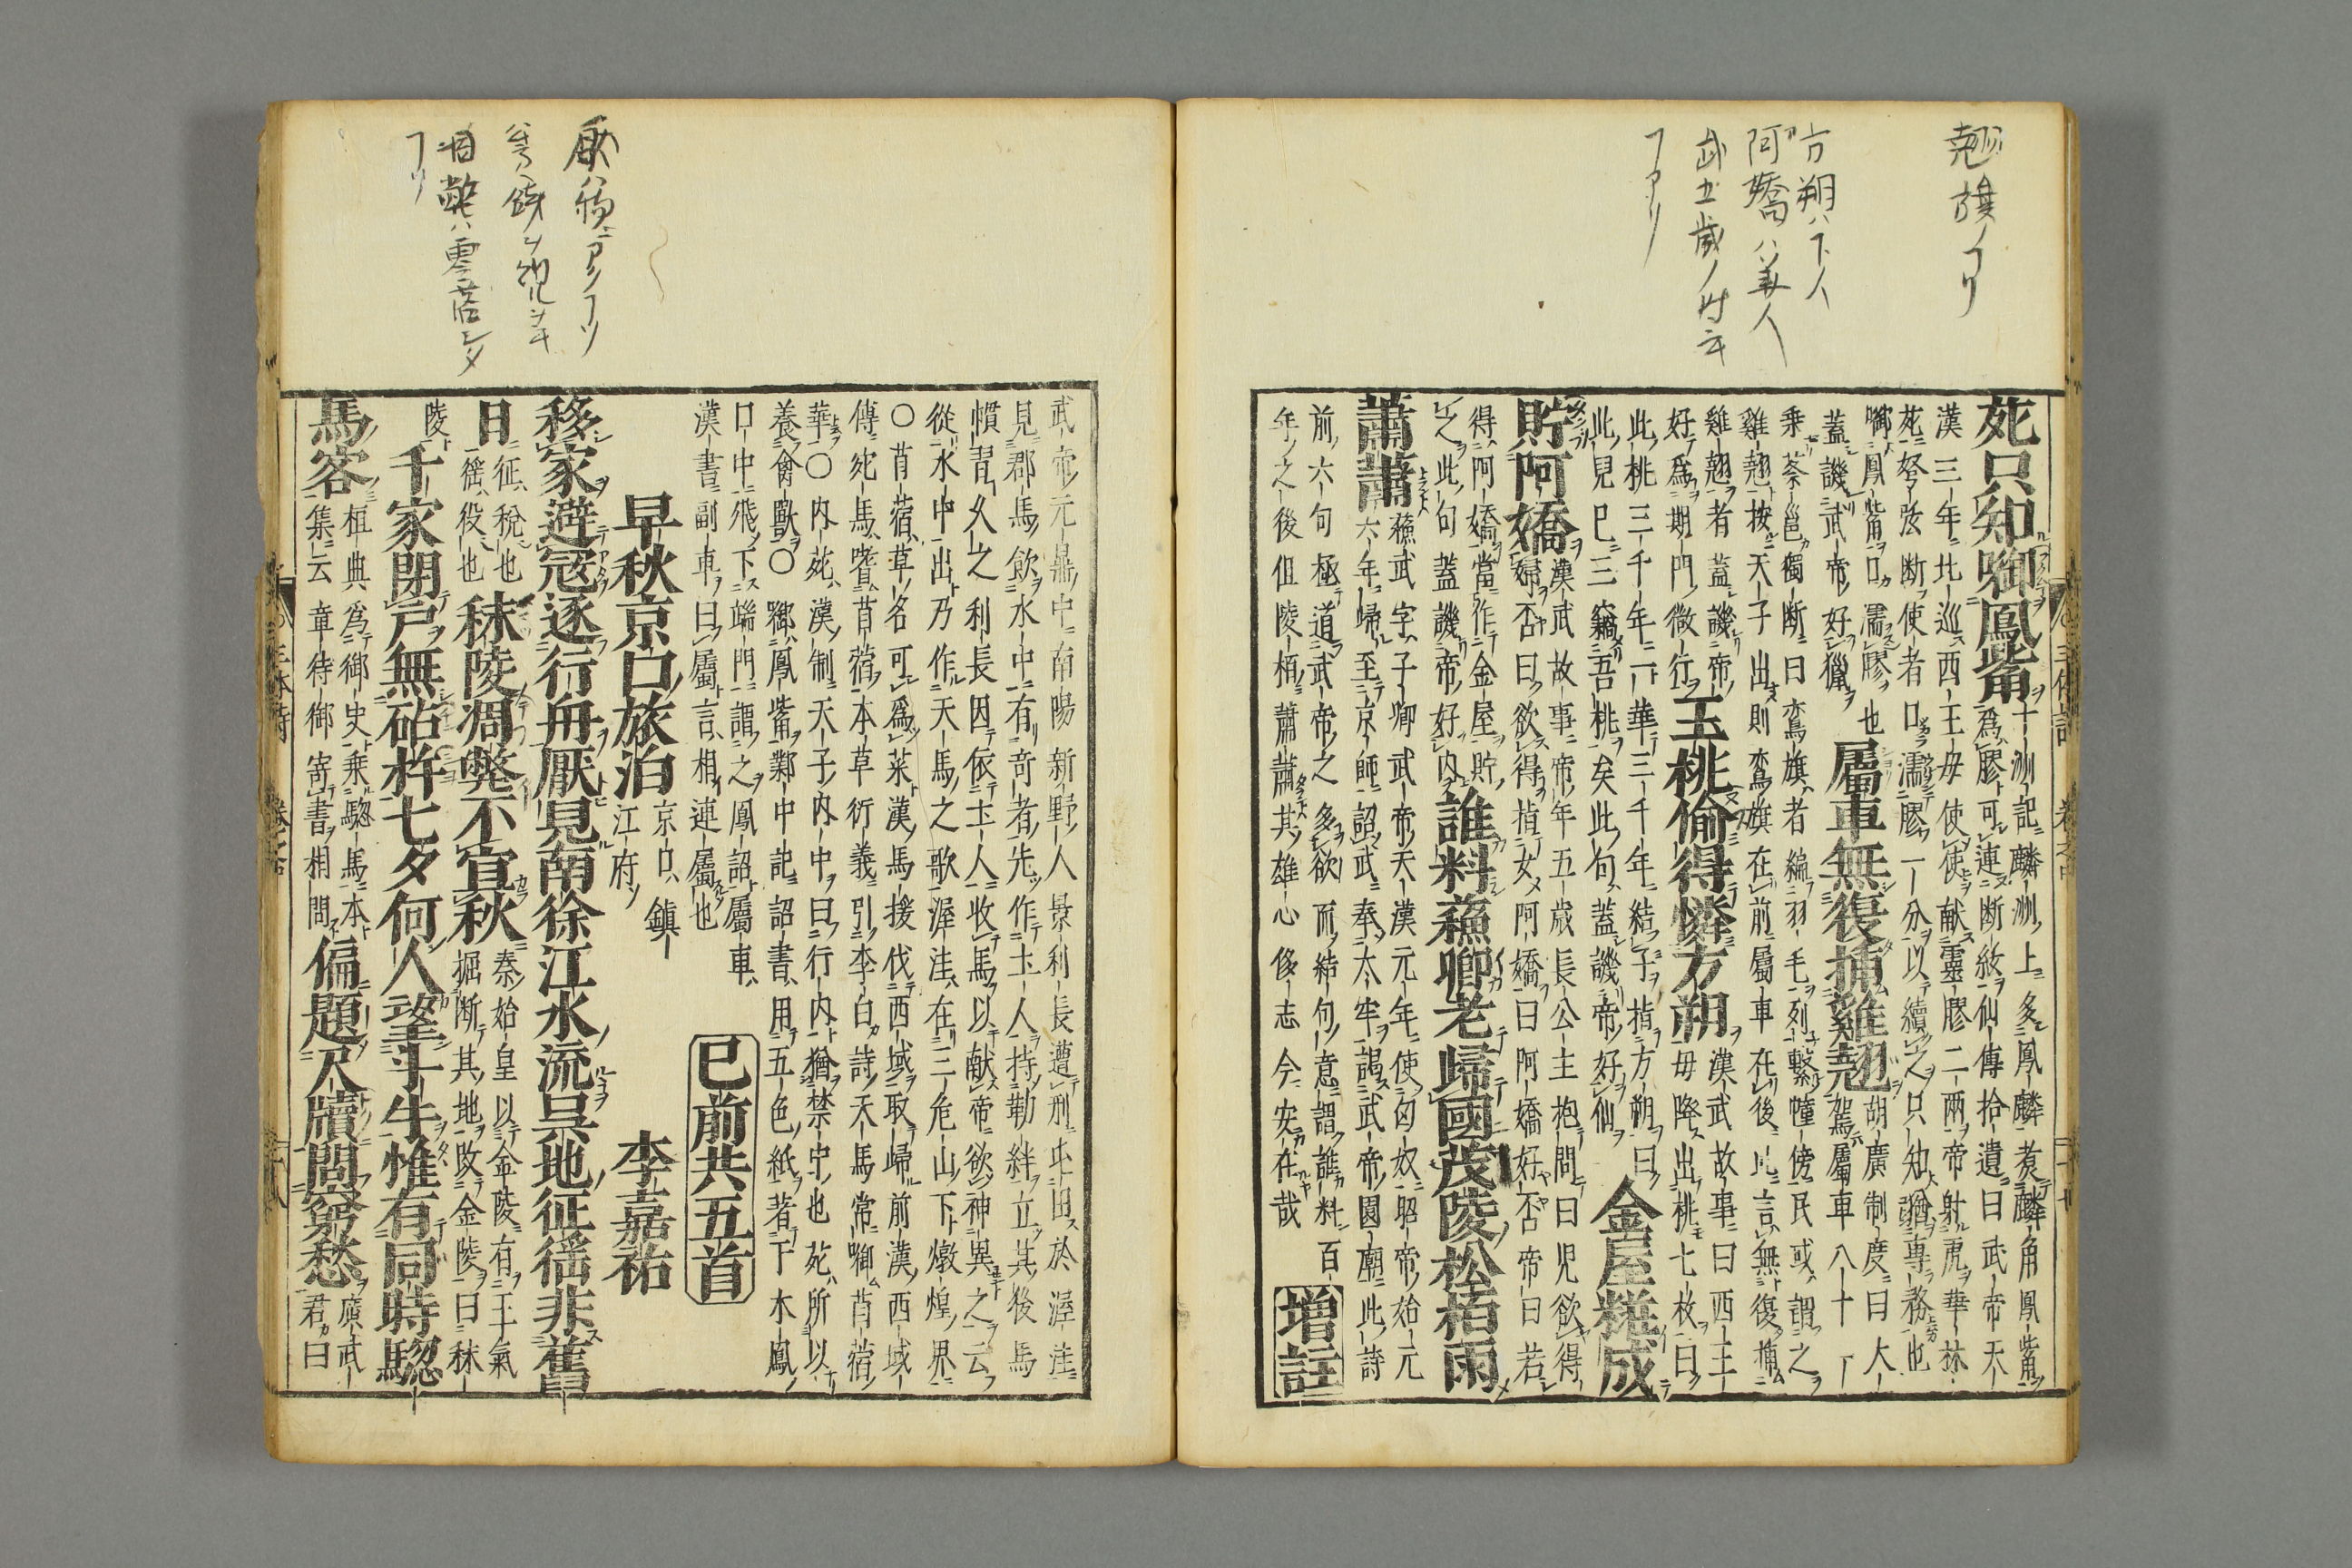 死只知啣鳳觜
十洲記麟洲上多鳳麟煮麟角鳳觜
爲膠可連断絃仙傳拾遺曰武帝天
漢三年北巡西王母使使献靈膠二兩帝射虎華林
死弩弦断使者口濡膠一分以續之只知猶專務也
啣鳳觜口濡膠也
屬車無復捕雞翹
胡廣制度曰大
駕屬車八十一
蓋譏武帝好獵
乗蔡邕獨断曰鸞旗者編羽毛列繫幢傍民或謂之
雞翹按天子出則鸞旗在前屬車在後此言無復捕
雞翹者蓋譏帝
好爲期門微行
玉桃偷得憐方朔
漢武故事曰西王
母降出桃七枚曰
此桃三千年一華三千年結子指方朔曰
此兒已三竊吾桃矣此句蓋譏帝好仙
金屋糚成
貯阿嬌
漢武故事帝年五歳長公主抱問曰児欲得
婦否曰欲得指女阿嬌曰阿嬌好否帝曰若
得阿嬌當作金屋貯
之此句蓋譏帝好内
誰料蘓卿老歸國茂陵松栢雨
蕭蕭
蘓武字子卿武帝天漢元年使匈奴昭帝始元
六年歸至京師詔武奉太牢謁武帝園廟此詩
前六句極道武帝之多欲而結句意謂誰料百
年之後但陵栢蕭蕭其雄心侈志今安在哉
増註
武帝元鼎中南陽新野人景利長遭刑屯田於渥洼
見郡馬飲水中有奇者先作土人持勒絆立其後馬
慣習久之利長因依土人收馬以献帝欲神異之云
從水中出乃作天馬之歌渥洼在三危山下燉煌界
〇苜蓿草名可爲菜漢馬援伐西域取歸前漢西域
傳宛馬嗜苜蓿本草衍義引李白詩天馬常啣苜蓿
華〇内苑漢制天子内中曰行内猶禁中也苑所以
養禽獸〇啣鳳觜鄴中記詔書用五色紙著下木鳳
口中飛下端門謂之鳳詔屬車
漢書副車曰屬言相連屬也
已前共五首
早秋京口旅泊
京口鎮
江府
李嘉祐
移家避冦逐行舟厭見南徐江水流呉地征徭非舊
日
征税也
徭役也
秣陵凋弊不宜秋
秦始皇以金陵有王氣
掘断其地改金陵曰秣
陵
千家閉戸無砧杵七夕何人望斗牛惟有同時驄
馬客
桓典爲御史乗驄馬本
集云章待御寄書相問
偏題尺牘問窮愁
廣武
君曰
翹旗ノフリ
方朔ハ下人
阿嬌ハ美人
武五歳ノ时ニキ